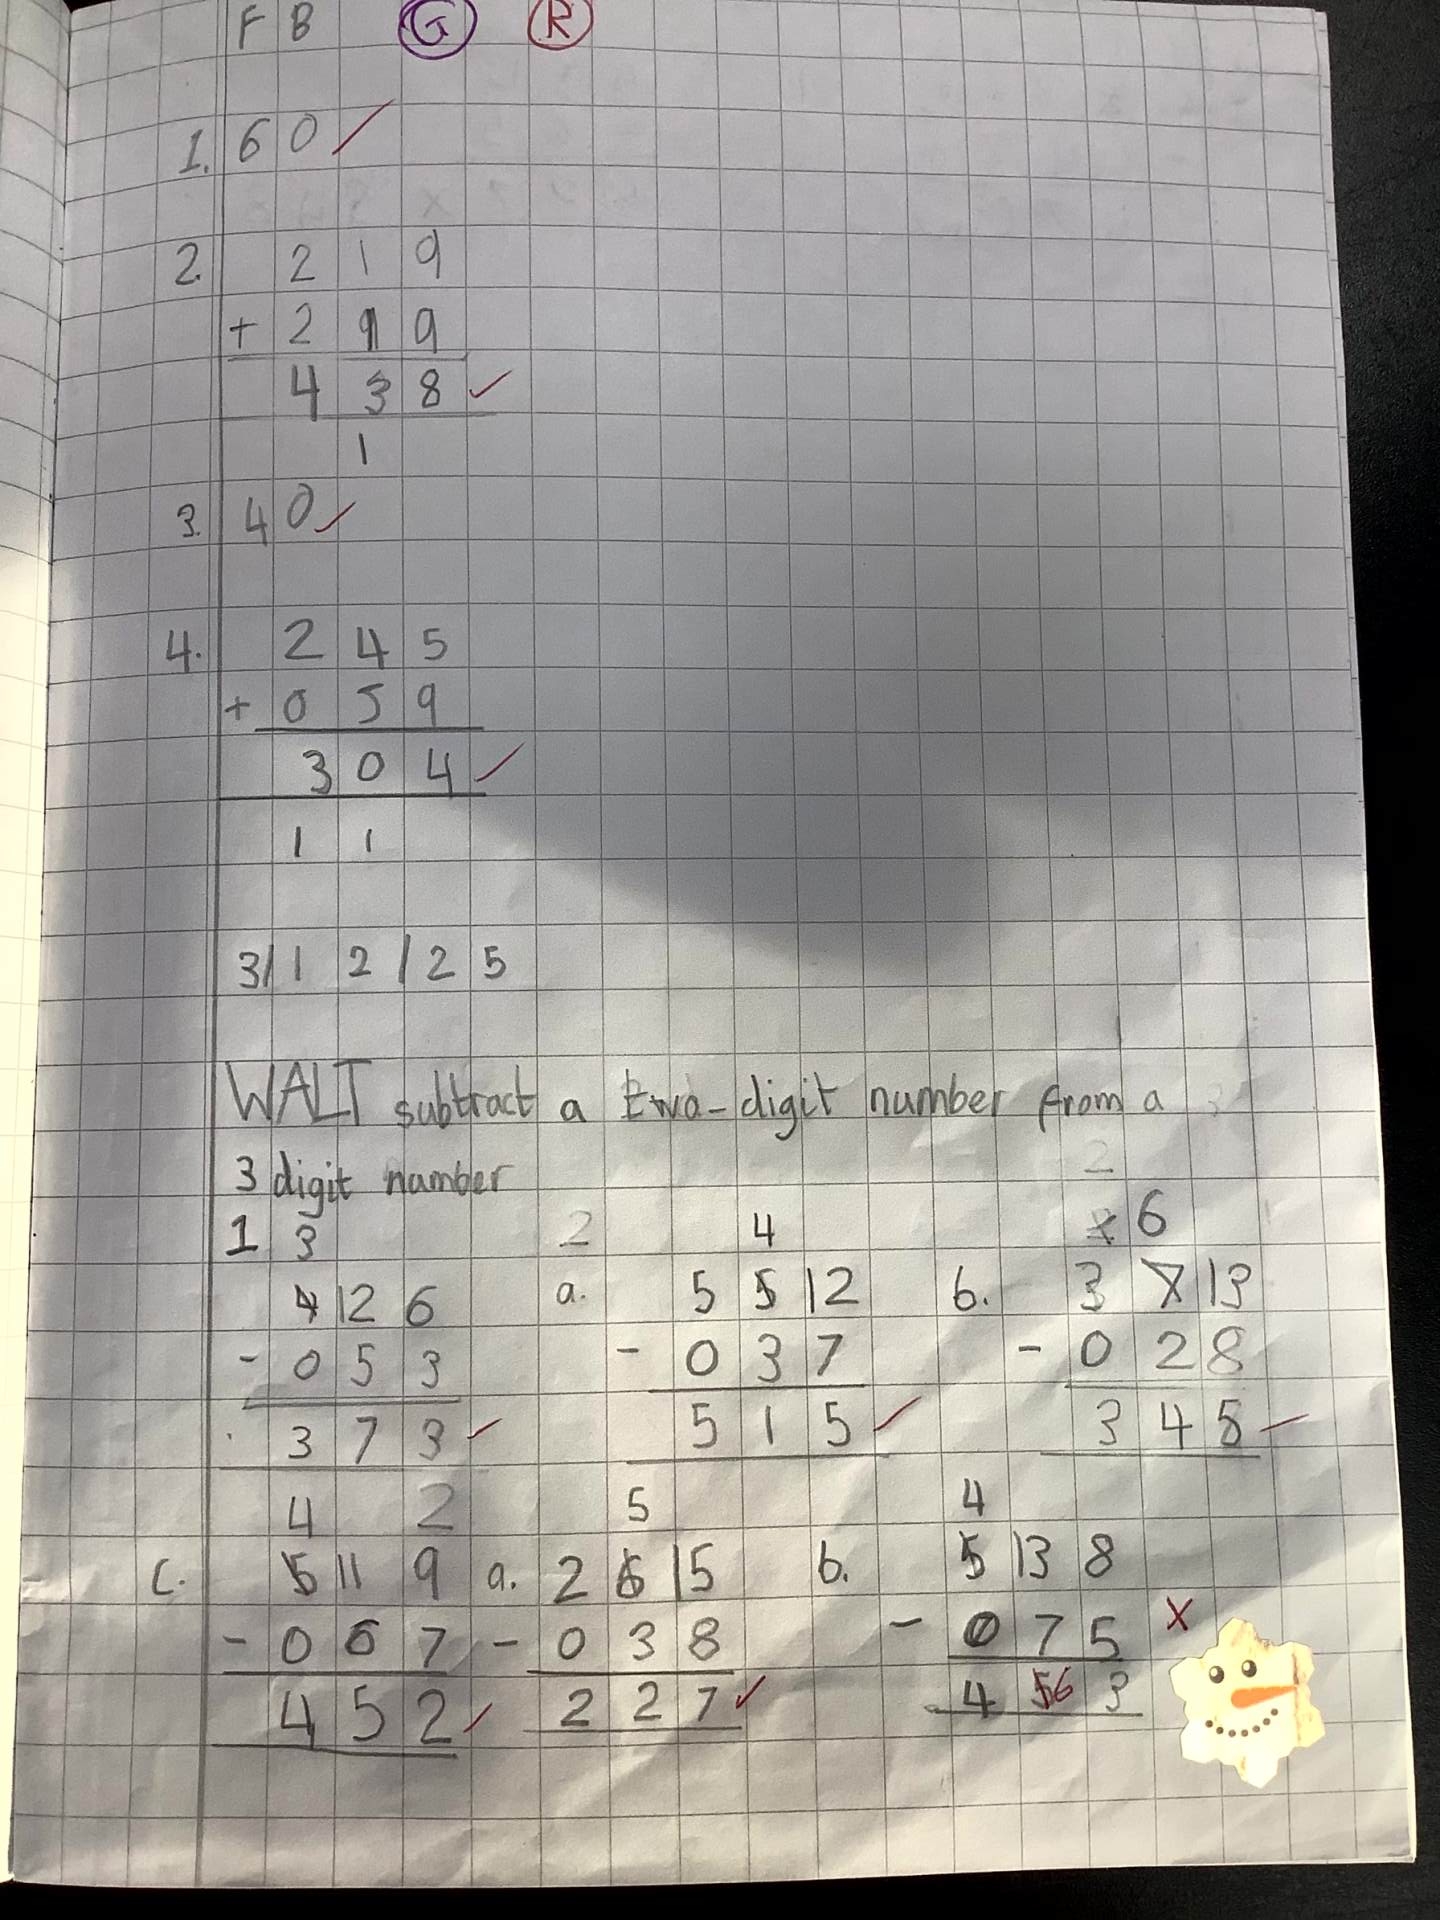 F B G R
1. 60
2. 219
+ 219
438
1
3. 40
4. 245
+ 059
304
1 1
3/12/25
WALT subtract a two-digit number from a
3 digit number
1 3
4126
- 053
373
2 4
a. 5512
- 037
515
2
1 6
b. 3713
- 028
345
4 2
c. 5119
- 067
452
5
a. 2615
- 038
227
4
b. 5138
- 075 x
4 56 3